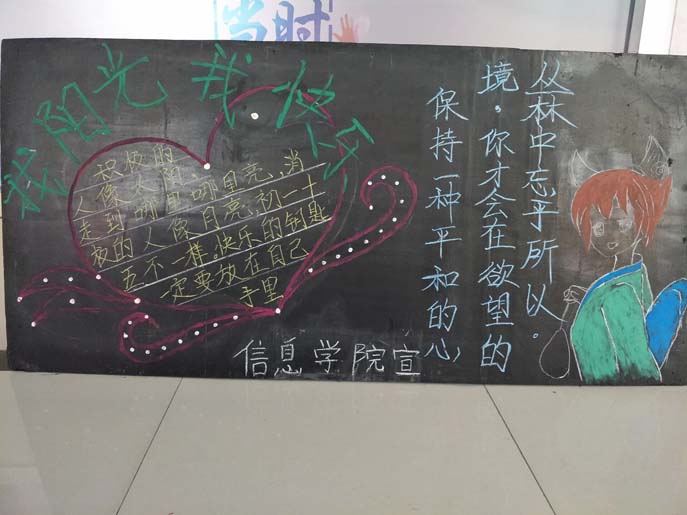 当时
我阳光 我快乐
积极的
人像太阳、
走到哪里哪里亮、消
极的人像月亮,初一十
五不一样。快乐的钥匙
一定要放在自己
手里
保持一种平和的心
境。你才会在欲望的
丛林中忘乎所以。
信息学院宣